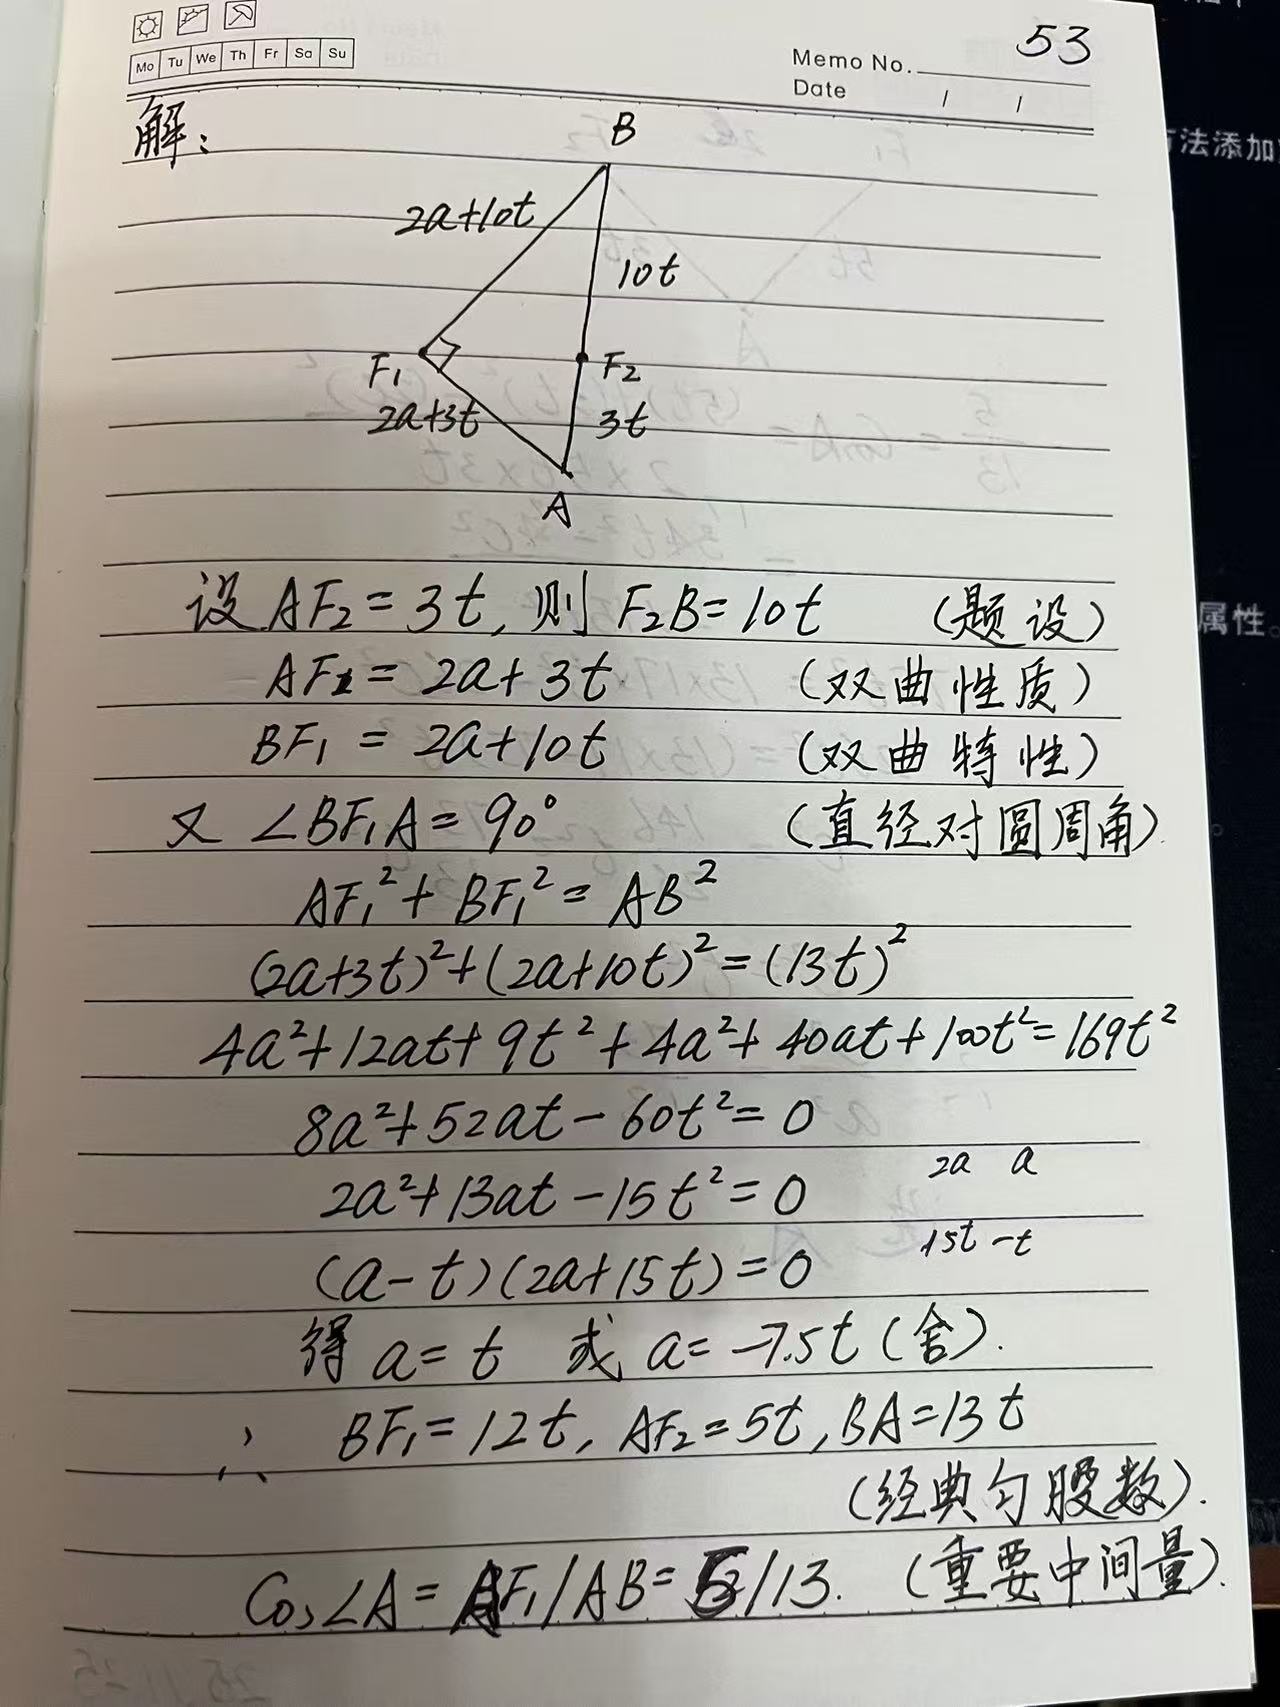 53
Mo Tu We Th Fr Sa Su
Memo No.
Date / /
解:
B
2a+10t
10t
F₁
F₂
2a+3t
3t
A
设 AF₂ = 3t, 则 F₂B = 10t (题设)
AF₁ = 2a+3t (双曲性质)
BF₁ = 2a+10t (双曲特性)
又 ∠BF₁A = 90° (直径对圆周角)
AF₁² + BF₁² = AB²
(2a+3t)² + (2a+10t)² = (13t)²
4a²+12at+9t²+4a²+40at+100t²=169t²
8a²+52at-60t²=0
2a²+13at-15t²=0
2a a
15t -t
(a-t)(2a+15t)=0
得 a=t 或 a=-7.5t (舍).
∴ BF₁=12t, AF₂=5t, BA=13t
(经典勾股数).
Cos∠A = AF₁/AB = 5/13. (重要中间量).
方法添加
属性。